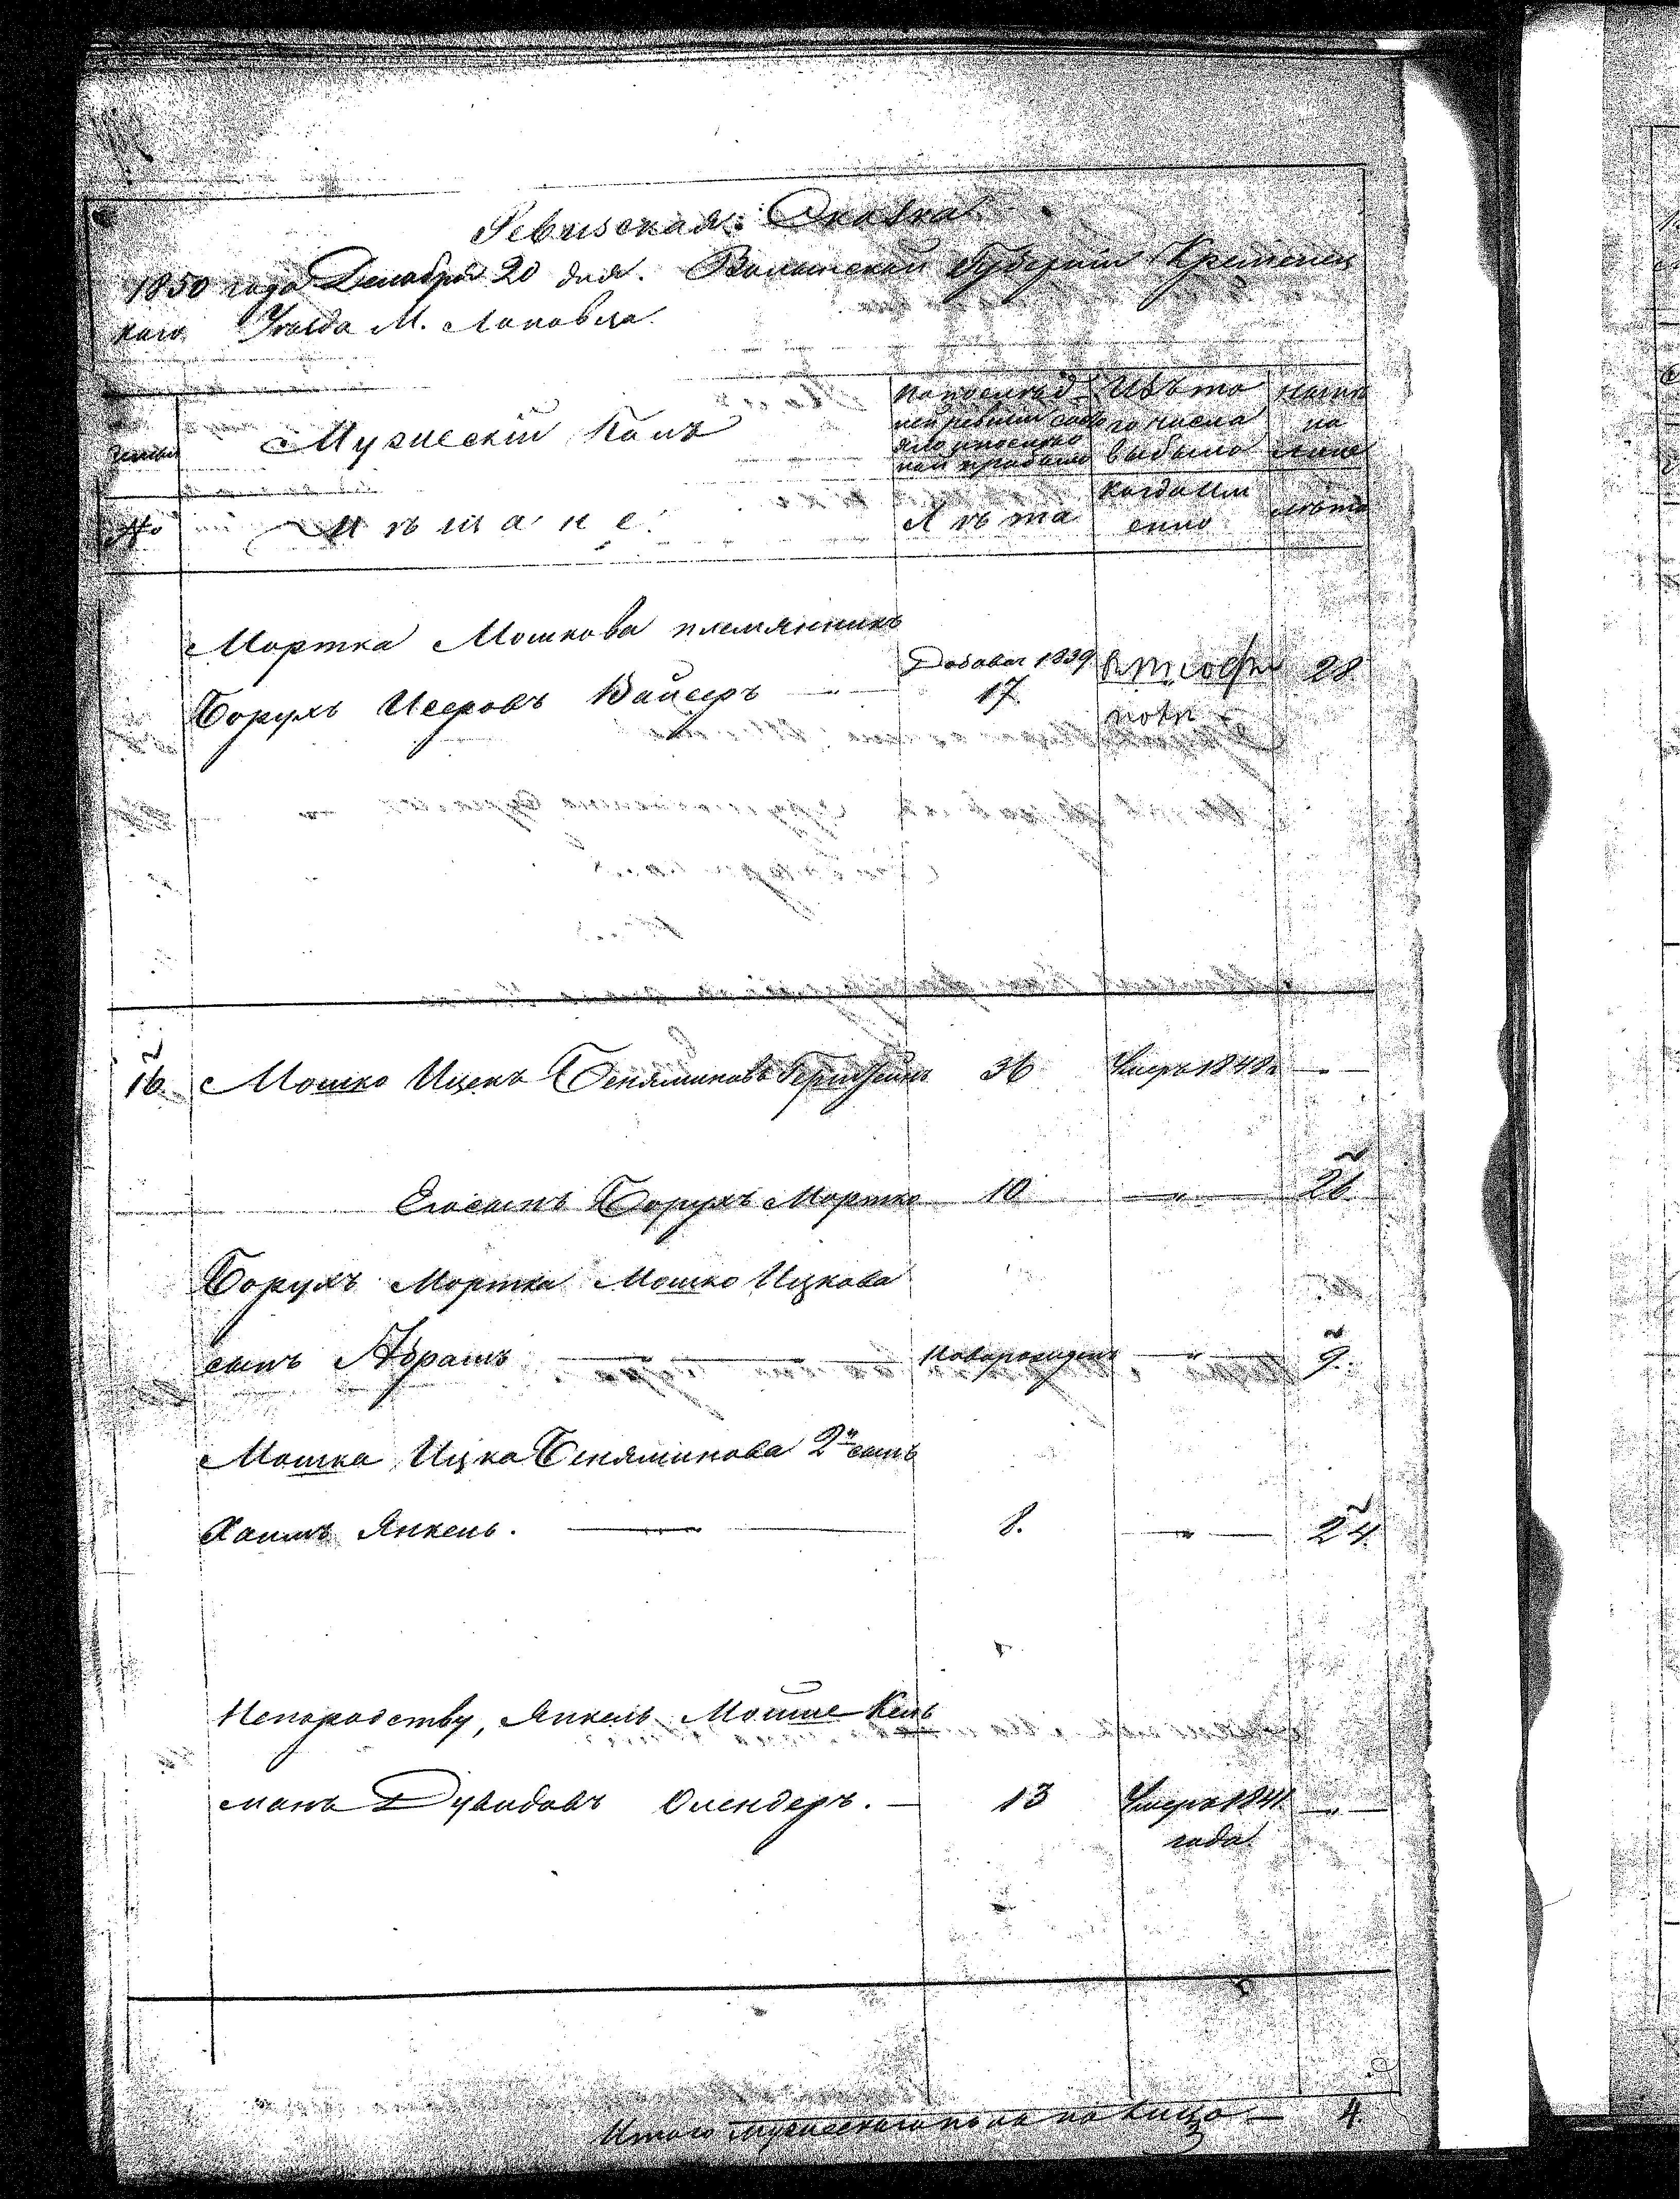 Ревизская Сказка
1850 года Декабря 20 дня. Волынской Губернии Кременец
каго Уезда М. Лановца
Мужескій Полъ
Изъ то
го числа
выбыло
Ныне
на
лицо
No
Мѣщане.
Лѣта
Когда Им
енно
лѣта
Мортка Мошкова племянникъ
Борухъ Исеровъ Вайсеръ
Добавоч 1839
17
28
16 Мошко Ицекъ Беняминовъ 36 Умеръ 1848 г
Его сынъ Борухъ Мортко 10 — " — 26
Борухъ Мортка Мошко Ицкова
сынъ Абрамъ — " — Новорожденъ — " — 9.
Мошка Ицка Беняминова 2й сынъ
Хаимъ Янкель. — " — 8. — " — 24.
Непородству, Янкель Мошие Кель
манъ Дувидовъ Олендеръ. — 13 Умеръ 1841
года
Итого мужескаго пола на лицо — 4.